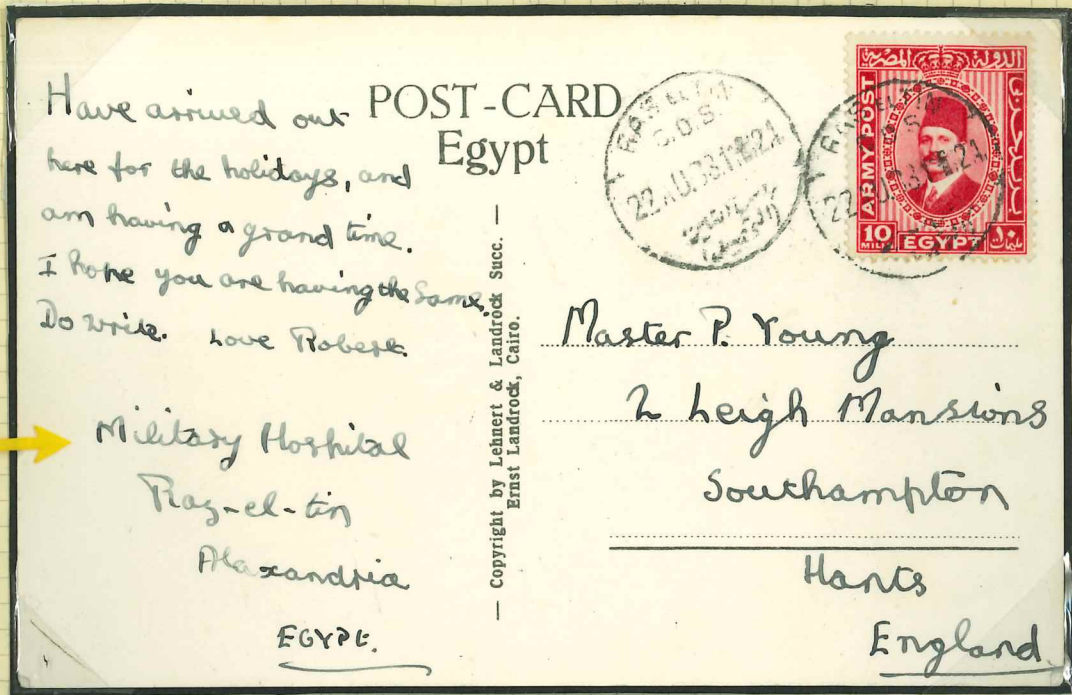 Have arrived out
here for the holidays, and
am having a grand time.
I hope you are having the same.
Do write. Love Robert.
Military Hospital
Raz-el-tin
Alaxandria
EGYPT.
POST-CARD
Egypt
— Copyright by Lehnert & Landrock Succ. —
Ernst Landrock, Cairo.
S.O.S.
22.
الدولة المصرية
ARMY POST
10
MILLS
EGYPT
Master P. Young
2 Leigh Mansions
Southampton
Hants
England.